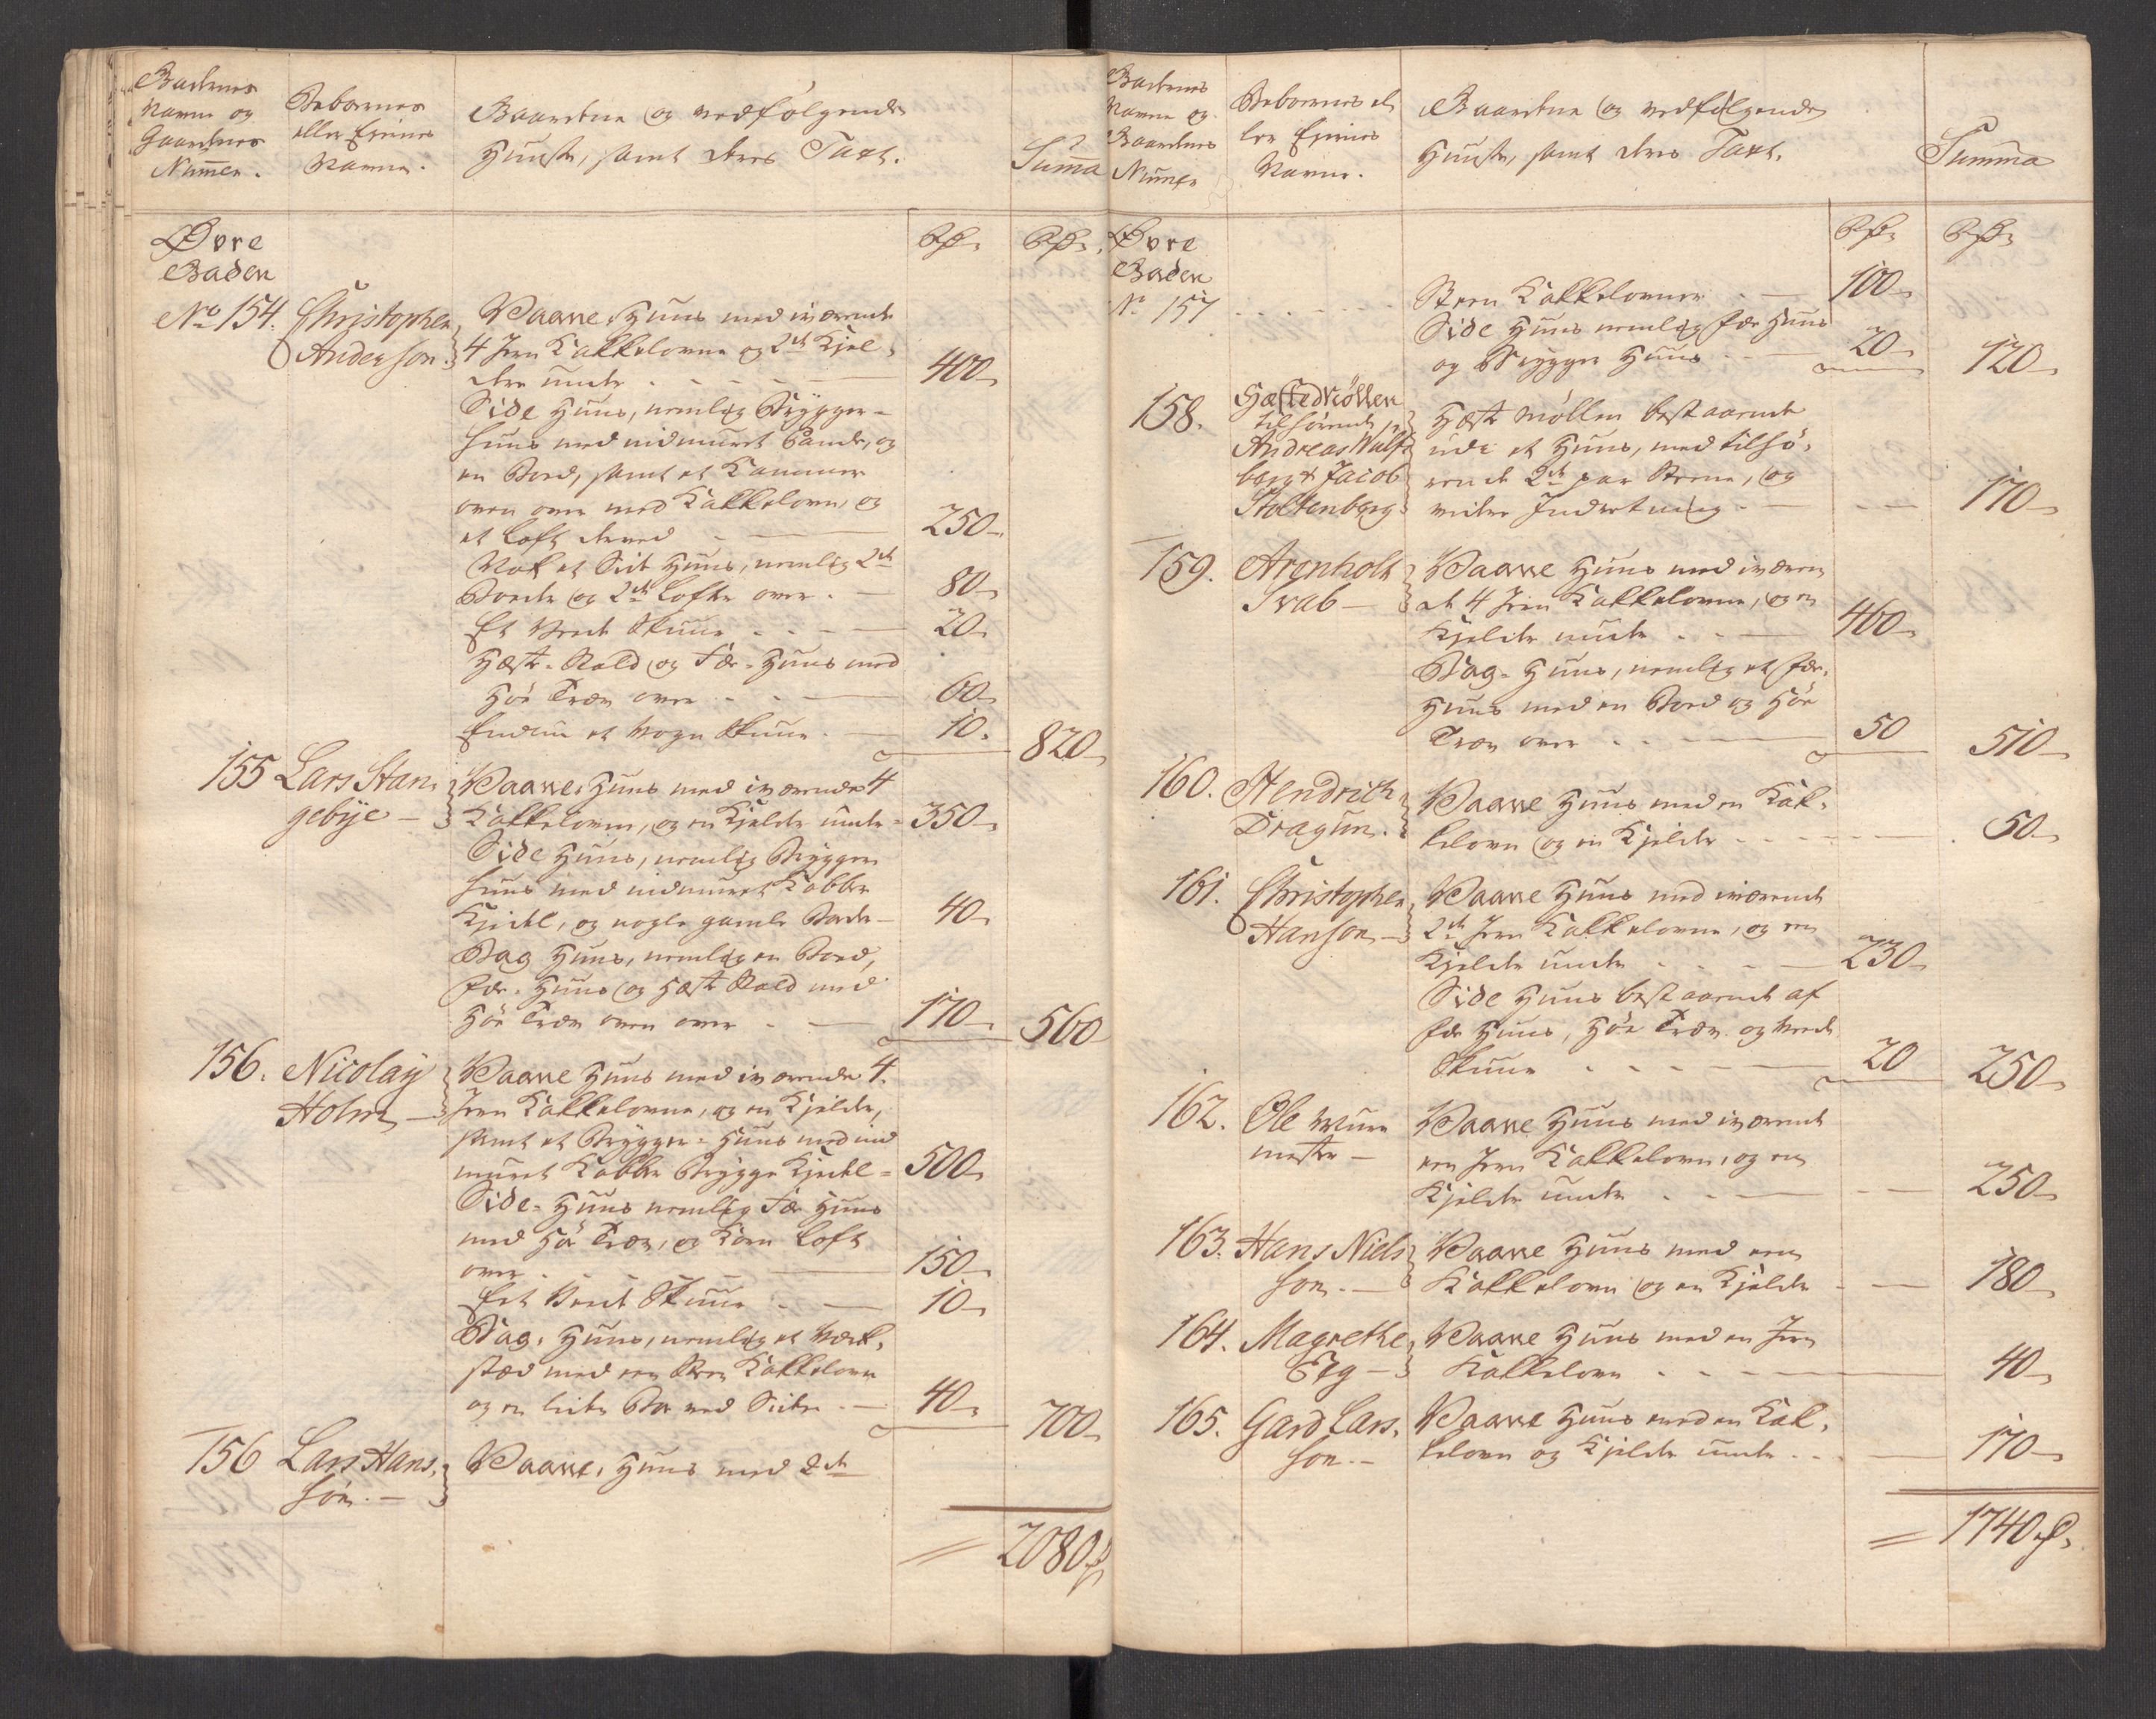 Gadernes
Navne og
Gaardenes
Numer.
Beboernes
eller Eyernes
Navne.
Gaardene og vedfølgende
Huuse, samt deres Taxt.
Summa
Øvre
Gaden
Rdr.
Rdr.
No 154.
Christopher
Anderson.
Vaane-Huus med iværende
4 Jern Kakkelovne og 2de Kjel-
dre unde
400
Side Huus, nemlig Brygger-
huus med indmuret Pande, og
en Boed, samt et Kammer
oven over med Kakkelovn, og
et Loft derved
250
Nok et Side Huus, nemlig 2de
Boede og 2de Lofte over.
80
Et Veed Skuur
20
Hæste-Stald og Fæe-Huus med
Høe Træv over
60
Endnu et Vogn Skuur
10.
820
155
Lars Stan-
gebÿe
Vaane-Huus med iværende 4
Kakkelovne, og en Kjelder unde
350
Side Huus, nemlig Brygger
huus med indmuret Kobber
Kjedel, og nogle gamle Boder
40
Bag Huus, nemlig en Boed,
Fæe-Huus og Hæste Stald med
Høe Træv oven over
170
560
156.
Nicolaÿ
Holm
Vaane Huus med iværende 4.
Jern Kakkelovne, og en Kjelder,
samt et Brygger-Huus med ind
muret Kobber Brygge Kjedel
500
Side-Huus nemlig Fæe Huus
med Høe Træv, og Korn Loft
over
150
Eet Veed Skuur
10
Bag-Huus, nemlig et Værk-
stæd med een Steen Kakkelovn
og en liden Boe ved Siden
40
700
156
Lars Hans-
søn.
Vaane-Huus med 2de
2080
Gadernes
Navne og
Gaardenes
Numer
Beboernes el-
ler Eyernes
Navne.
Gaardene og vedfølgende
Huuse, samt deres Taxt.
Summa
Øvre
Gaden
Rdr.
Rdr.
No 157
Steen Kakkelovner
100
Side Huus nemlig Fæe Huus
og Brygger Huus
20
120
158.
Hæstemøllen
tilhørende
Andreas Wulfs
berg & Jacob
Stoltenberg
Hæste Møllen bestaaende
udi et Huus, med tilhø-
rende 2de par Steene, og
videre Indretning
170
159.
Arenholt
Svab
Vaane Huus med iværen
de 4 Jern Kakkelovne, og en
Kjelder unde
460
Bag-Huus, nemlig et Fæe-
Huus med en Boed og Høe
Træv over
50
510
160.
Hendrich
Dragun.
Vaane Huus med en Kak-
kelovn og en Kjelder
50
161.
Christopher
Hanson
Vaane Huus med iværende
2de Jern Kakkelovne, og en
Kjelder unde
230
Side Huus bestaaende af
Fæe Huus, Høe Træv og Veed
Skuur
20
250
162.
Ole Muur
mester
Vaane Huus med iværende
een Jern Kakkelovn, og en
Kjelder unde
250
163.
Hans Niels
son.
Vaane Huus med een
Kakkelovn og en Kjelder
180
164.
Magrethe
Eeg
Vaane Huus med en Jern
Kakkelovn
40
165.
Gard Lars-
son.
Vaane Huus med en Kak-
kelovn og Kjelder unde
170
1740